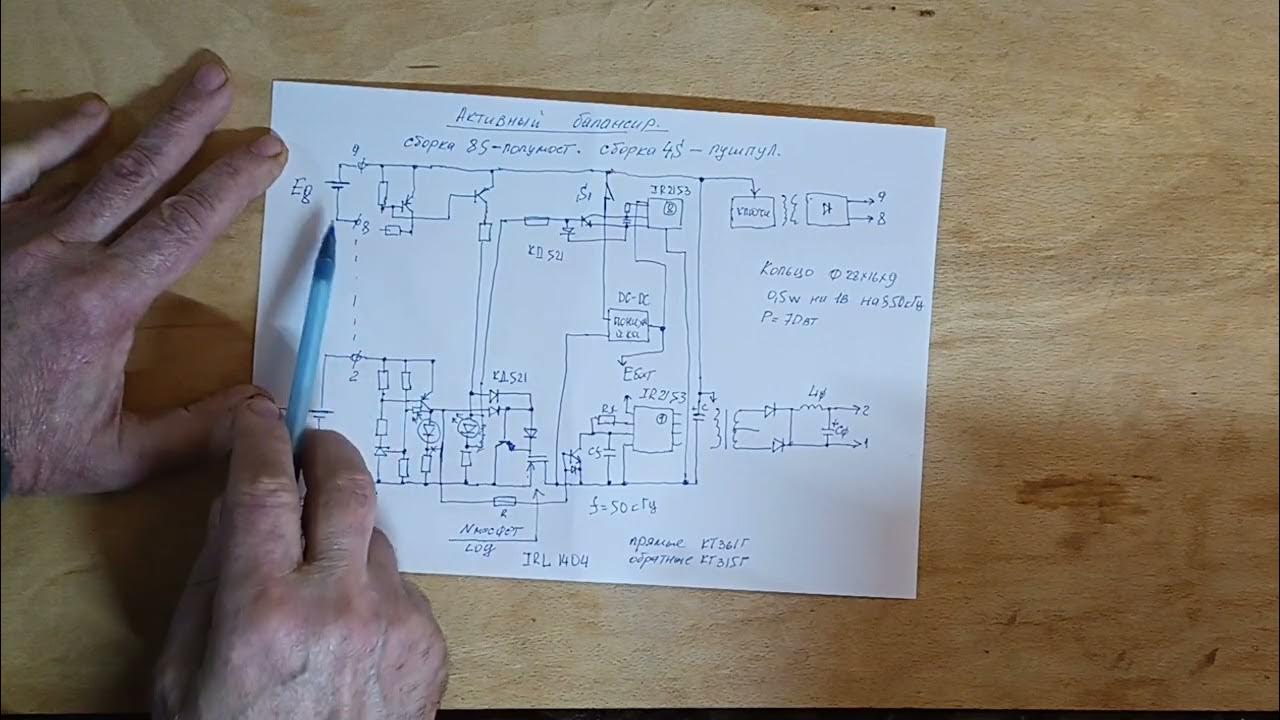 Активный балансир.
сборка 8S-полумост. сборка 4S-пушпул.
9
E8
8
S1
IR2153
②
ключи
9
8
КД521
Кольцо Ф28х16х9
0,5w на 1в на 350кГц
DC-DC
Eбат
2
КД521
IR2153
R1
①
C
Lф
2
Cф
1
R
f=50кГц
Nмосфет
Log
IRL1404
прямые КТ361Г
обратные КТ315Г